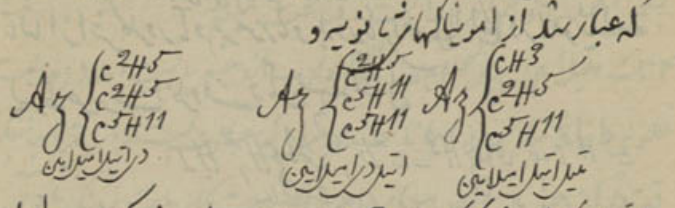 که عبارتند از امونیاکهای ثانویه و
Az { CH3 C2H5 C5H11
متیل اتیل امیلامین
Az { C2H5 C5H11 C5H11
اتیل دی امیلامین
Az { C2H5 C2H5 C5H11
دی اتیل امیلامین